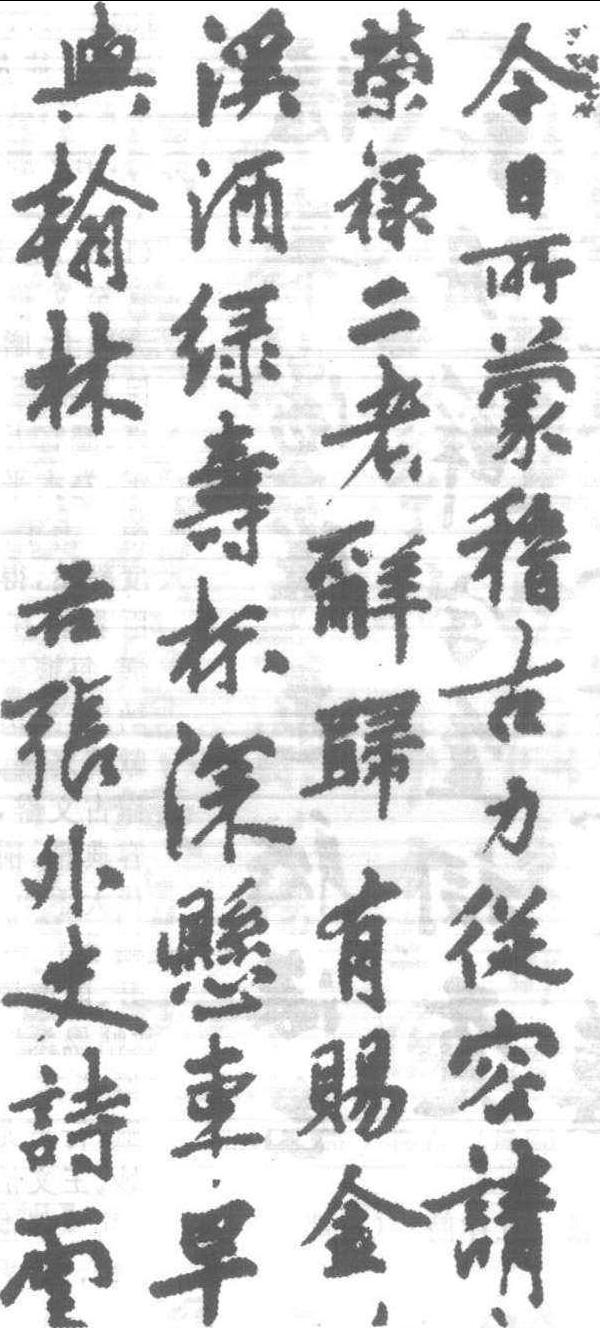 今日所蒙稽古力從容請
榮祿二者辭歸有賜金
溪酒緑壽杯深懸車早
與翰林君張外史詩雲